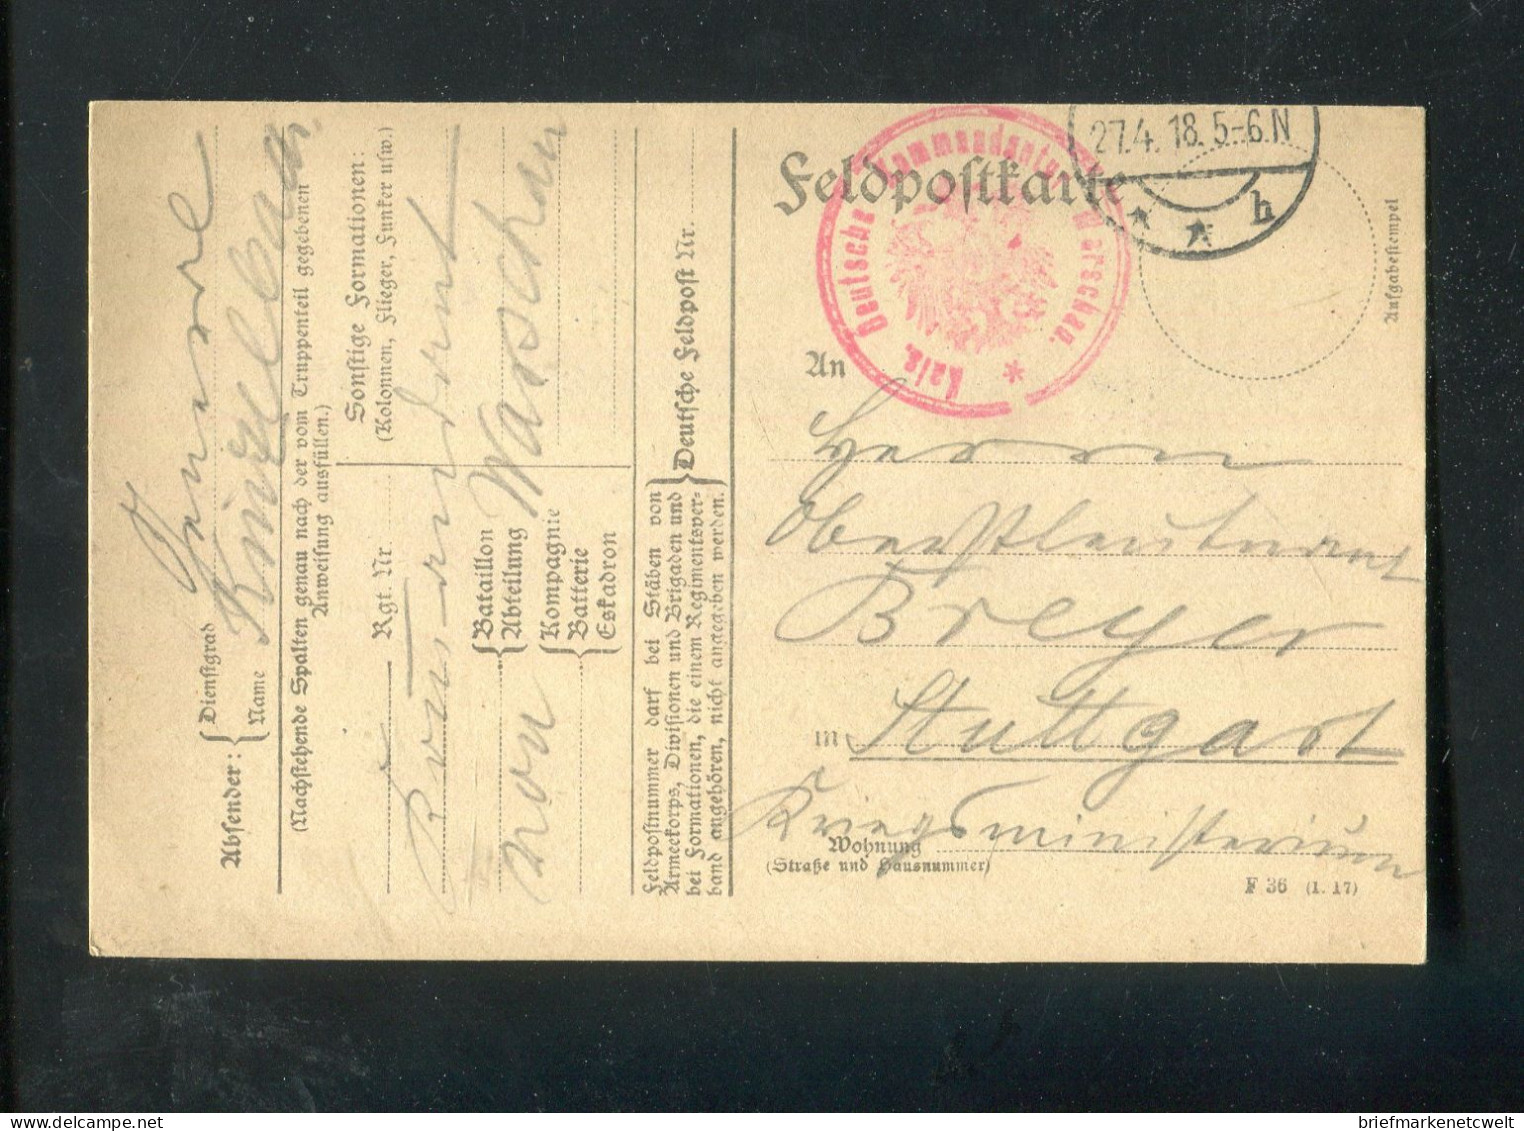 Feldpostkarte
Kais. Deutsche Kommandantur Warschau.
27.4.18.5-6.N
h
Aufgabestempel
An
Herrn
Oberstleutnant
Breyer
in Stuttgart
Kriegsministerium
Wohnung
(Straße und Hausnummer)
F 36 (1. 17)
Absender:
Dienstgrad
Name
(Nachstehende Spalten genau nach der vom Truppenteil gegebenen
Anweisung ausfüllen.)
Sonstige Formationen:
(Kolonnen, Flieger, Funker usw.)
Rgt. Nr.
von Warschau
Bataillon
Abteilung
Kompagnie
Batterie
Eskadron
Feldpostnummer darf bei Stäben von
Armeekorps, Divisionen und Brigaden und
bei Formationen, die einem Regimentsver-
band angehören, nicht angegeben werden.
Deutsche Feldpost Nr.
briefmarkenetcwelt